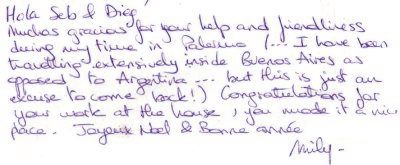 Hola Seb & Diego
Muchas gracias for your help and friendliness
during my time in Palermo (... I have been
travelling extensively inside Buenos Aires as
opposed to Argentina --- but this is just an
excuse to come back!) Congratulations for
your work at the house, you made it a nice
place. Joyeux Noel & Bonne année
Emily -